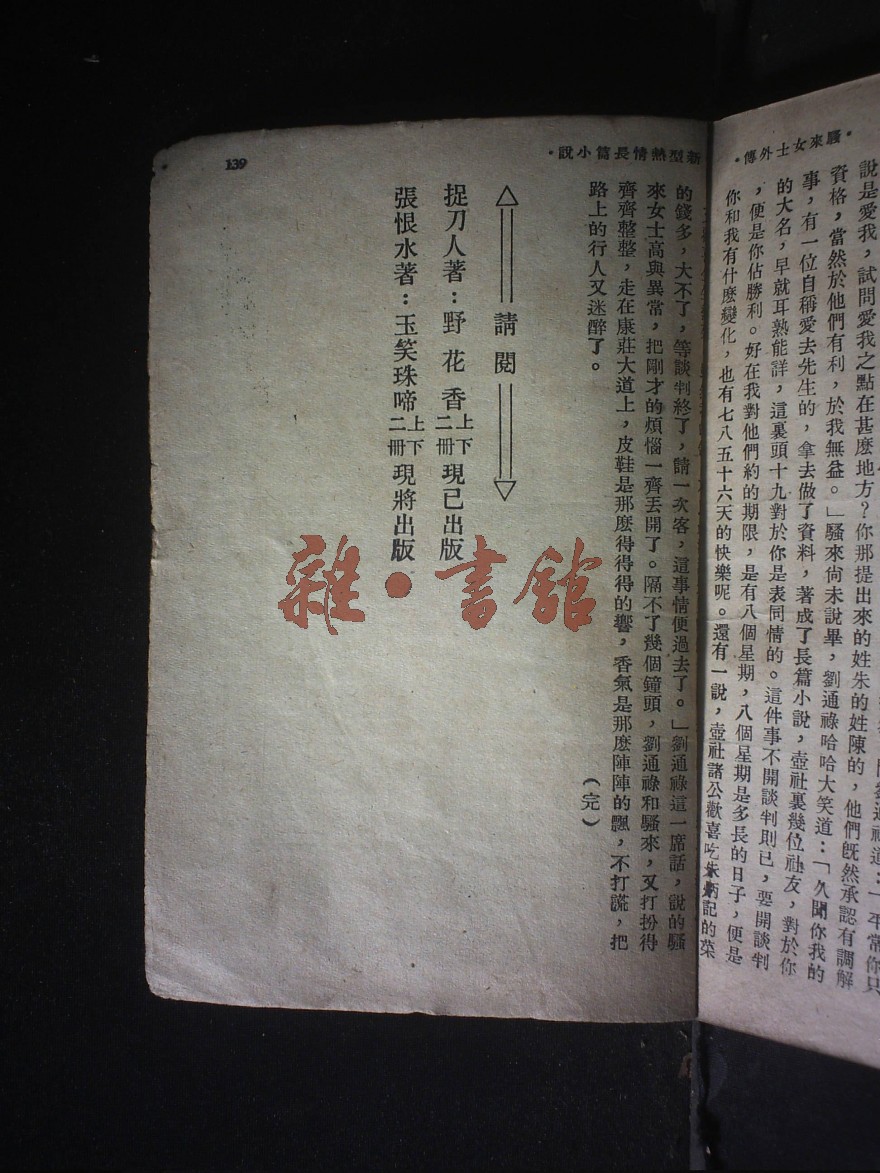 •騷來女士外傳•
說是愛我，試問愛我之點在甚麽地方？你那提出來的姓朱的姓陳的，他們旣然承認有調解
資格，當然於他們有利，於我無益。」騷來尙未說畢，劉通祿哈哈大笑道：「久聞你我的
事，有一位自稱愛去先生的，拿去做了資料，著成了長篇小說，壺社裏幾位社友，對於你
的大名，早就耳熟能詳，這裏頭十九對於你是表同情的。這件事不開談判則已，要開談判
，便是你佔勝利。好在我對他們約的期限，是有八個星期，八個星期是多長的日子，便是
你和我有什麽變化，也有七八五十六天的快樂呢。還有一說，壺社諸公歡喜吃朱炳記的菜
新型熱情長篇小說•
的錢多，大不了，等談判終了，請一次客，這事情便過去了。」劉通祿這一席話，說的騷
來女士高興異常，把剛才的煩惱一齊丟開了。隔不了幾個鐘頭，劉通祿和騷來，又打扮得
齊齊整整，走在康莊大道上，皮鞋是那麽得得得的響，香氣是那麽陣陣的飄，不打謊，把
路上的行人又迷醉了。
（完）
請閱
捉刀人著：野花香上下二冊現已出版
張恨水著：玉笑珠啼上下二冊現將出版
139
雜•書館